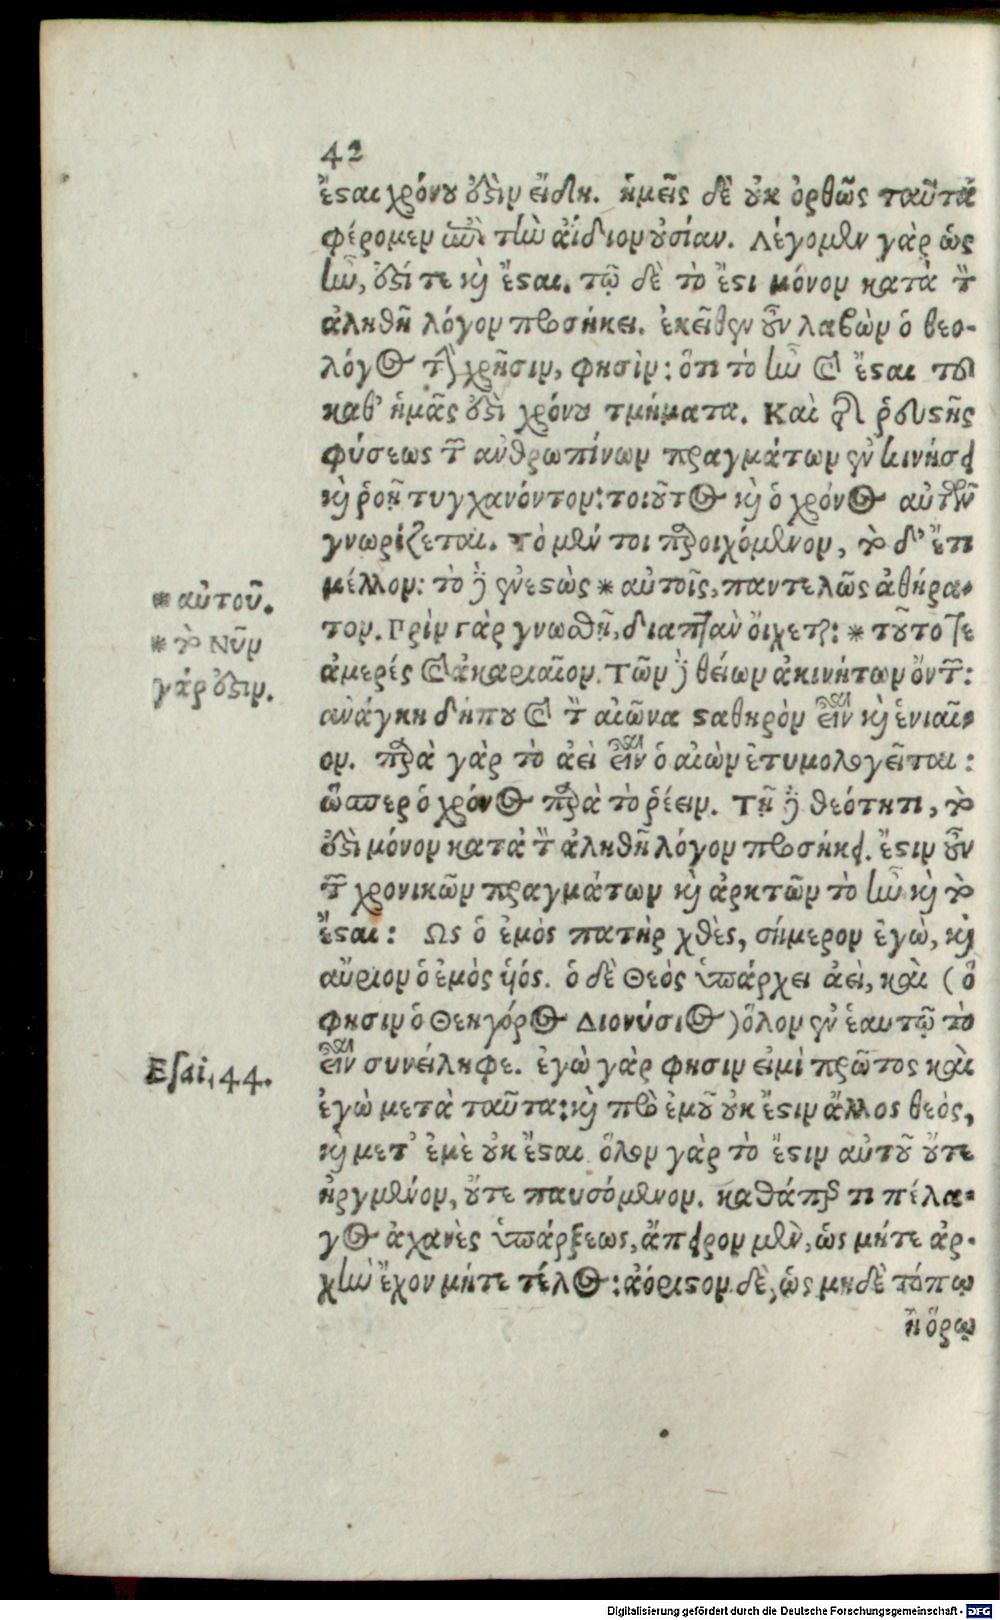 42
ἔσαι χρόνου ὅξιν εἴδη. ἡμεῖς δὲ οὐκ ὀρθῶς ταῦτα
φέρομεν ἐπὶ τὴν ἀΐδιον οὐσίαν. Λέγομεν γὰρ ὡς
ἦν, ἐστί τε καὶ ἔσται. τῷ δὲ τὸ ἔστι μόνον κατὰ τὸν
ἀληθῆ λόγον προσήκει. ἐκεῖθεν οὖν λαβὼν ὁ θεο-
λόγος τὴν χρῆσιν, φησὶν: ὅτι τὸ ἦν καὶ ἔσται τοῦ
καθ' ἡμᾶς ἐστὶ χρόνου τμήματα. Καὶ τῆς ῥευστῆς
φύσεως τῶν ἀνθρωπίνων πραγμάτων ἐν κινήσει
καὶ ῥοῇ τυγχανόντον: τοιοῦτος καὶ ὁ χρόνος αὐτῶν
γνωρίζεται. τὸ μέν τοι παροιχόμενον, τὸ δ' ἔτι
μέλλον: τὸ δὲ ἐνεστὼς * αὐτοῖς, παντελῶς ἀθήρα-
τον. Πρὶν γὰρ γνωσθῇ, διαπτὰν οἴχεται: * τοῦτό τε
ἀμερές καὶ ἀκαριαῖον. Τῶν δὲ θείων ἀκινήτων ὄντων:
ἀνάγκη δήπου καὶ τὸν αἰῶνα σταθηρὸν εἶναι καὶ ἑνιαῖ-
ον. παρὰ γὰρ τὸ ἀεὶ εἶναι ὁ αἰὼν ἐτυμολογεῖται:
ὥσπερ ὁ χρόνος παρὰ τὸ ῥέειν. Τῇ δὲ θεότητι, τὸ
ἐστὶ μόνον κατὰ τὸν ἀληθῆ λόγον προσήκει. ἔστιν οὖν
τῶν χρονικῶν πραγμάτων καὶ ἀρκτῶν τὸ ἦν καὶ τὸ
ἔσται: Ως ὁ ἐμὸς πατὴρ χθὲς, σήμερον ἐγὼ, καὶ
αὔριον ὁ ἐμὸς υἱός. ὁ δὲ Θεὸς ὑπάρχει ἀεὶ, καὶ (ὅ
φησιν ὁ Θεηγόρος Διονύσιος) ὅλον ἐν ἑαυτῷ τὸ
εἶναι συνείληφε. ἐγὼ γάρ φησιν εἰμὶ πρῶτος καὶ
ἐγὼ μετὰ ταῦτα: καὶ πρὸ ἐμοῦ οὐκ ἔστιν ἄλλος θεὸς,
καὶ μετ' ἐμὲ οὐκ ἔσται ὅλον γὰρ τὸ ἔστιν αὐτοῦ οὔτε
ἠργμένον, οὔτε παυσόμενον. καθάπερ τι πέλα-
γος ἀχανὲς ὑπάρξεως, ἄπειρον μὲν, ὡς μήτε ἀρ-
χὴν ἔχον μήτε τέλος: ἀόριστον δὲ, ὡς μηδὲ τόπῳ
ἢ ὅρῳ
* αὐτοῦ.
* τὸ Νῦν
γάρ ἐστιν.
Esai, 44.
Digitalisierung gefördert durch die Deutsche Forschungsgemeinschaft - DFG